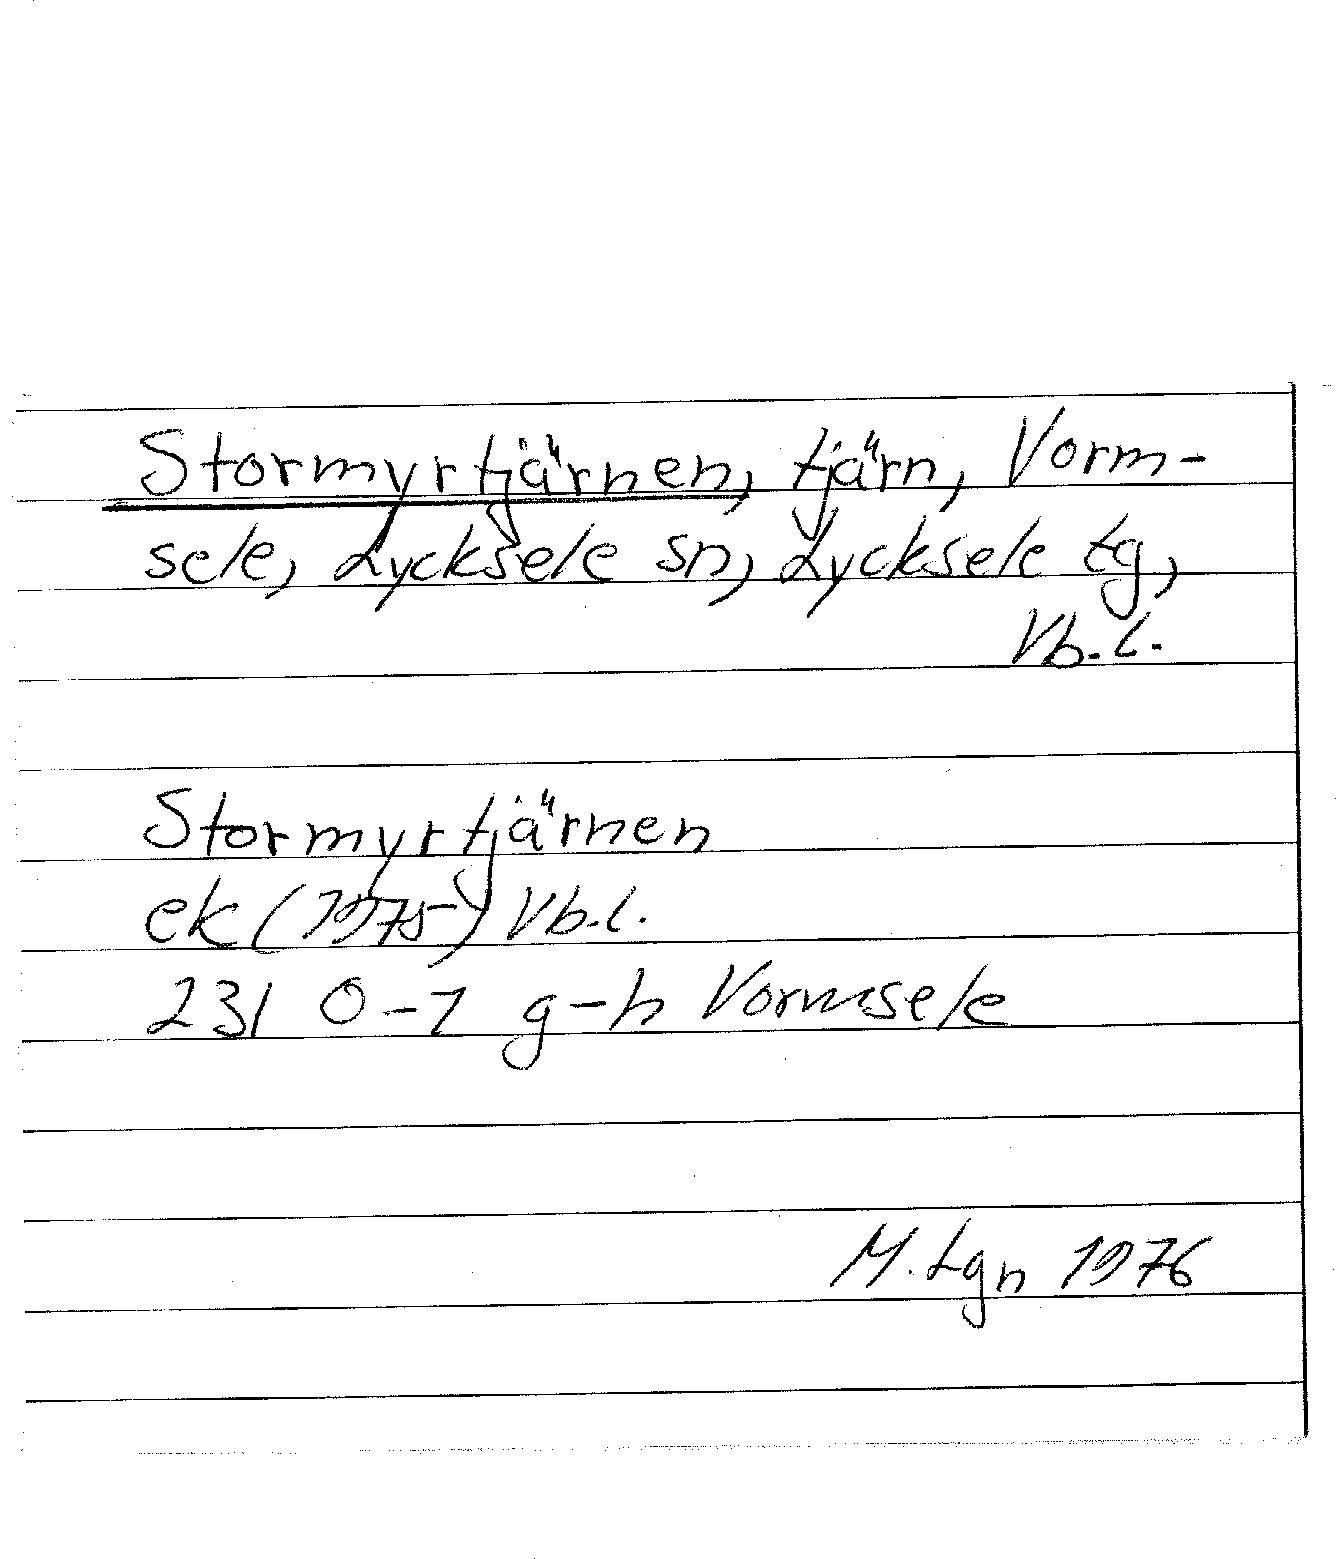 Stormyrtjärnen, tjärn, Vorm-
sele, Lycksele sn, Lycksele tg,
Vb.l.
Stormyrtjärnen
ek (1975) Vb.l.
231 0-1 g-h Vormsele
M. Lgn 1976